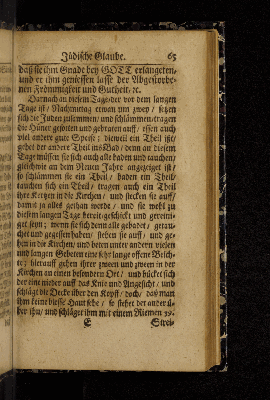 Jüdische Glaube. 65
daß sie ihm Gnade bey GOTT erlangeten/
und er ihn geniessen lasse der Abgestorbe-
nen Frömmigkeit und Gutheit. ꝛc.
Darnach an diesem Tage/der vor dem langen
Tage ist/ Nachmittag etwan um zwey / setzen
sich die Juden zusammen/ und schlämmen/tragen
die Hüner gesotten und gebraten auff/ essen auch
viel andere gute Speise; dieweil ein Theil isst/
gehet der andere Theil ins Bad/ denn an diesem
Tage müssen sie sich auch alle baden und tauchen/
gleichwie an dem Neuen Jahre angezeiget ist/
so schlämmen sie ein Theil / baden ein Theil/
tauchen sich ein Theil / tragen auch ein Theil
ihre Kertzen in die Kirchen/ und stecken sie auff/
damit ja alles gethan werde / und sie wohl zu
diesem langen Tage bereit geschickt und gereini-
get seyn; wenn sie sich denn alle gebadet/ getau-
chet und gegessen haben/ stehen sie auff/ und ge-
hen in die Kirchen/ und beten unter andern vielen
und langen Gebeten eine sehr lange offene Beich-
te; hierauff gehen ihrer zween und zween in der
Kirchen an einen besondern Ort/ und bücket sich
der eine nieder auff das Knie und Angesicht/ und
schlägt die Decke über den Kopff/ doch/ daß man
ihm keine blosse Haut sehe / so stehet der ander ü-
ber ihn/ und schläget ihm mit einem Riemen 39.
E Strei-